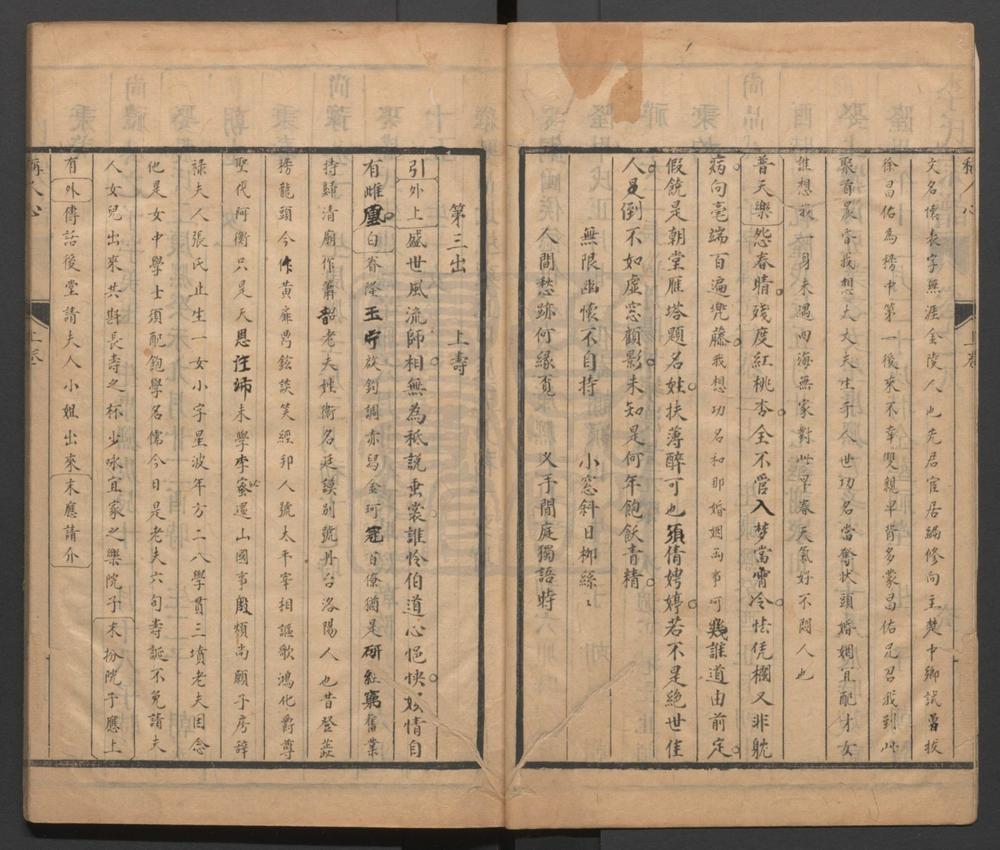 稱人心
上卷
文名懷表字無涯金陵人也先君宦居編修向主楚中鄉試曾拔
徐昌佑為榜中第一後來不幸雙親早背多蒙昌佑兄召我到此
聚首晨昏我想大丈夫生于人世功名當奪狀頭婚姻宜配才女
誰想我一身未遇四海無家對此早春天氣好不悶人也
普天樂怨春晴殘度紅桃杏全不管入夢當霄冷怯凭欄又非躭
病向毫端百遍兜藤我想功名和那婚姻両事可幾誰道由前定
假饒是朝堂雁塔題名妓扶薄醉可也須倩娉婷若不是絕世佳
人足倒不如虛窓顧影未知是何年飽飫青精
無限幽懷不自持　小窓斜日柳絲〻
人間愁跡何緣覔　义手閒庭獨語時
第三出　上壽
引外上盛世風流師相無為秪說垂裳誰怜伯道心悒怏〻情自
有雌凰白眷隆玉宁欬鈞調赤舄金珂冠百僚猶是研紅窮舊業
持歸清廟作簫韶老夫姓衛名廷謨別號丹台洛陽人也昔登蕊
榜龍頭今作黃扉畧鉉談笑經邦人號太平宰相謳歌鴻化爵尊
聖代阿衡只是天恩任沛未學李蜜還山國事殷煩尚願子房辞
祿夫人張氏止生一女小字星波年方二八學貫三墳老夫因念
他是女中學士須配飽學名儒今日是老夫六旬壽誕不免請夫
人女兒出來共斟長壽之杯少咏宜家之樂院子末扮院子應上
有外傳話後堂請夫人小姐出來末應請介
稱人心
上卷